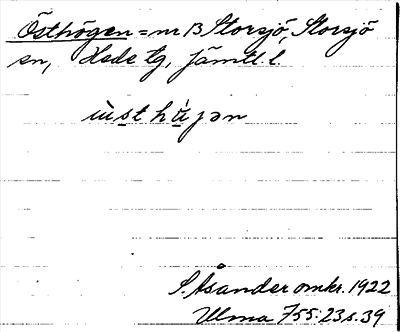 Östhögen = nr 13 Storsjö, Storsjö
sn, Hede tg, Jämtl. l.
ùsthʉ̀jən
S. Åsander omkr. 1922
Ulma 755:23 s. 39